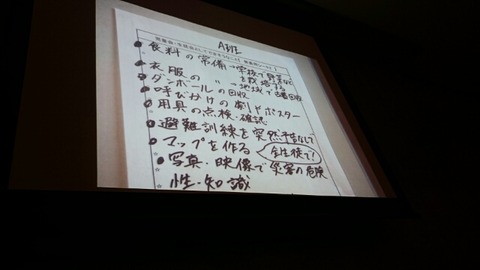 A班
食料の常備→学校で野菜など
を栽培する
衣服の 〃 →地域で古着回収
ダンボールの回収
呼びかけの劇やポスター
用具の点検・確認
避難訓練を突然予告なしで
マップを作る
全生徒で!
写真・映像で災害の危険
性・知識